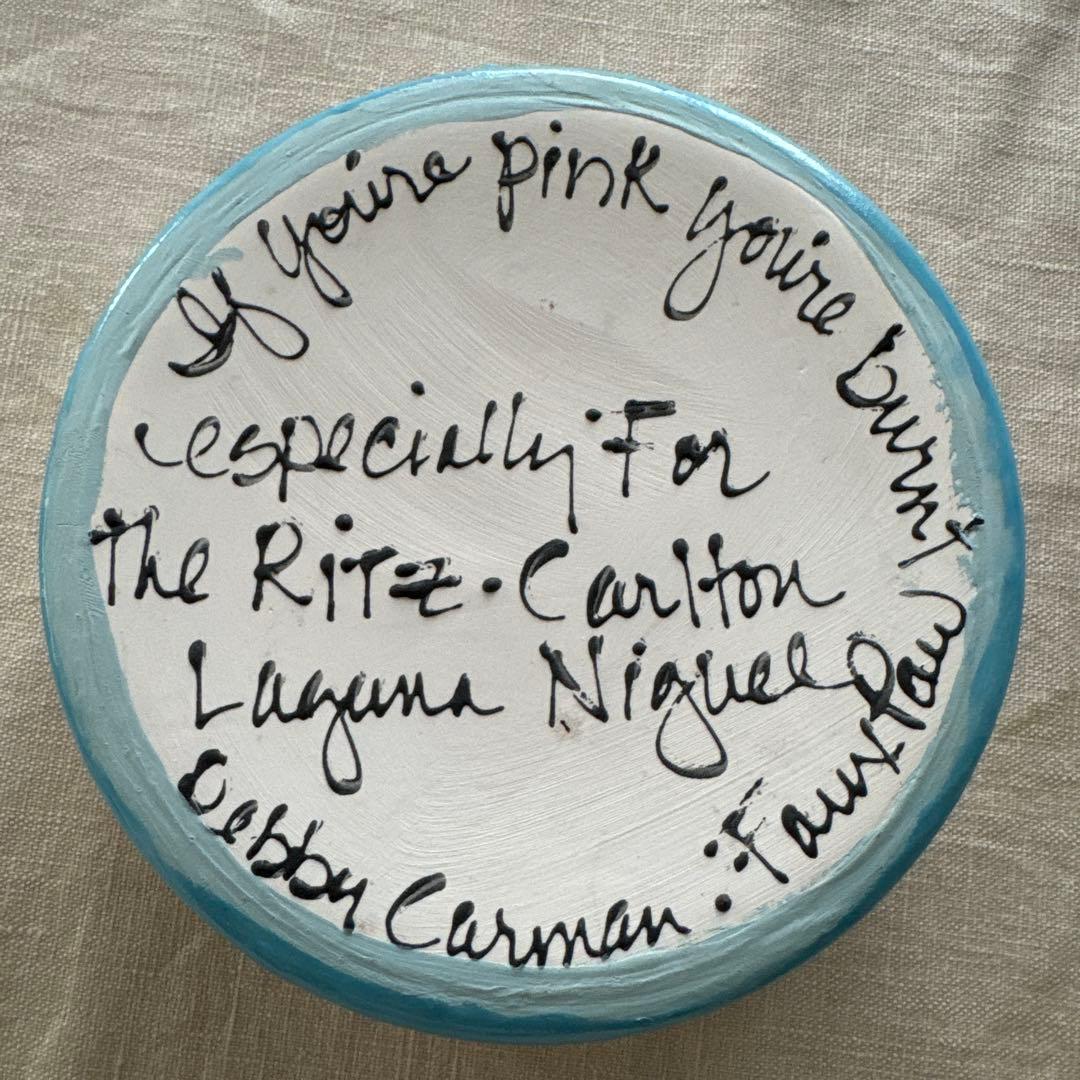 If you're pink you're burnt
especially For
The RiTz-Carlton
Laguna Niguel
Debby Carman : FauxPaw